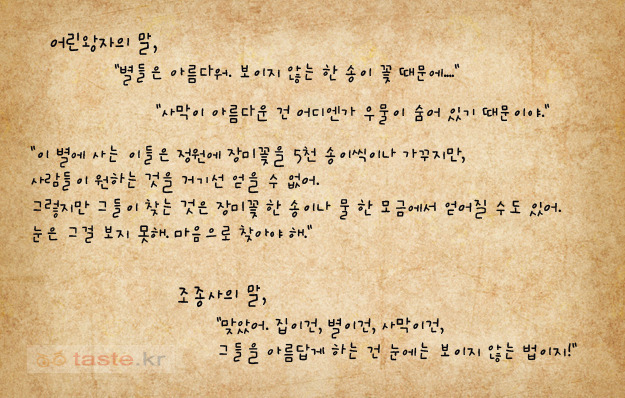 어린왕자의 말,
"별들은 아름다워. 보이지 않는 한 송이 꽃 때문에...."
"사막이 아름다운 건 어디엔가 우물이 숨어 있기 때문이야."
"이 별에 사는 이들은 정원에 장미꽃을 5천 송이씩이나 가꾸지만,
사람들이 원하는 것을 거기선 얻을 수 없어.
그렇지만 그들이 찾는 것은 장미꽃 한 송이나 물 한 모금에서 얻어질 수도 있어.
눈은 그걸 보지 못해. 마음으로 찾아야 해."
조종사의 말,
"맞았어. 집이건, 별이건, 사막이건,
그들을 아름답게 하는 건 눈에는 보이지 않는 법이지!"
taste.kr